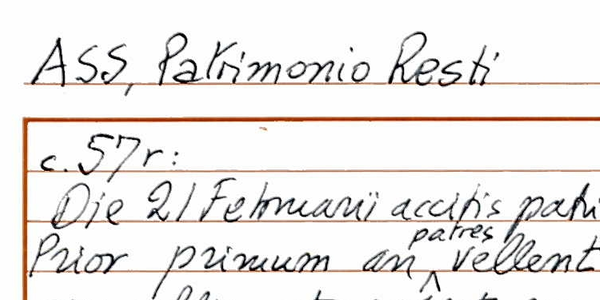 ASS, Patrimonio Resti
c. 57r:
Die 21 Februarii accitis patri
Prior primum an patres vellent